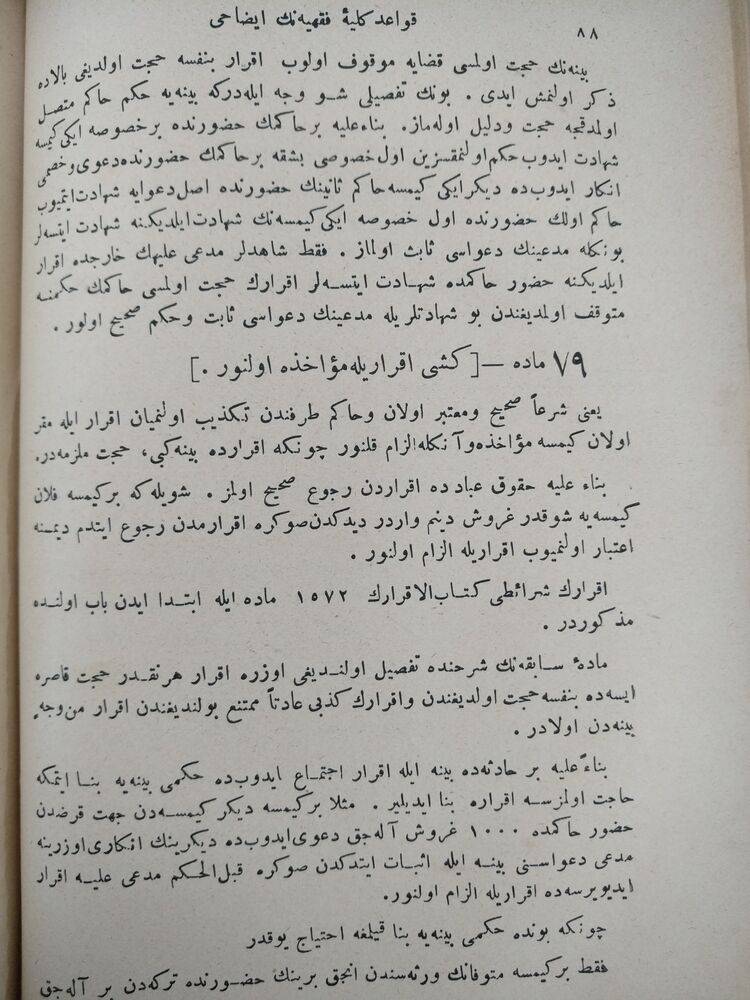 ٨٨
قواعد كليهٔ فقهيه‌نك ايضاحى
بينه‌نك حجت اولمسى قضايه موقوف اولوب اقرار بنفسه حجت اولديغى بالاده
ذكر اولنمش ايدى . بونك تفصيلى شو وجه ايله‌دركه بينه‌يه حكم حاكم متصل
اولمدقجه حجت ودليل اوله‌ماز. بناءعليه برحاكمك حضورنده برخصوصه ايكى كيمسه
شهادت ايدوب حكم اولنمقسزين اول خصوصى بشقه برحاكمك حضورنده دعوى وخصمى
انكار ايدوب‌ده ديكر ايكى كيمسه حاكم ثانينك حضورنده اصل دعوايه شهادت ايتميوب
حاكم اولك حضورنده اول خصوصه ايكى كيمسه‌نك شهادت ايلديكنه شهادت ايتسه‌لر
بونكله مدعينك دعواسى ثابت اولماز . فقط شاهدلر مدعى عليهك خارجده اقرار
ايلديكنه حضور حاكمده شهادت ايتسه‌لر اقرارك حجت اولمسى حاكمك حكمنه
متوقف اولمديغندن بو شهادتلريله مدعينك دعواسى ثابت وحكم صحيح اولور .
٧٩ ماده —[كشى اقراريله مؤاخذه اولنور .]
يعنى شرعاً صحيح ومعتبر اولان وحاكم طرفندن تكذيب اولنميان اقرار ايله مقر
اولان كيمسه مؤاخذه وآنكله الزام قلنور چونكه اقرارده بينه كبى، حجت ملزمه‌در.
بناء عليه حقوق عباد ده اقراردن رجوع صحيح اولمز . شويله كه بركيمسه فلان
كيمسه‌يه شوقدر غروش دينم واردر ديدكدن صوكره اقرارمدن رجوع ايتدم ديمسنه
اعتبار اولنميوب اقراريله الزام اولنور .
اقرارك شرائطى كتاب‌الاقرارك ١٥٧٢ ماده ايله ابتدا ايدن باب اولنده
مذكوردر .
مادهٔ سابقه‌نك شرحنده تفصيل اولنديغى اوزره اقرار هرنقدر حجت قاصره
ايسه‌ده بنفسه حجت اولديغندن واقرارك كذبى عادتاً ممتنع بولنديغندن اقرار من‌وجهٍ
بينه‌دن اولادر .
بناءً عليه بر حادثه‌ده بينه ايله اقرار اجتماع ايدوب‌ده حكمى بينه‌يه بنا ايتمكه
حاجت اولمزسه اقراره بنا ايديلير . مثلا بركيمسه ديكر كيمسه‌دن جهت قرضدن
حضور حاكمده ١٠٠٠ غروش آله‌جق دعوى ايدوب‌ده ديكرينك انكارى اوزرينه
مدعى دعواسنى بينه ايله اثبات ايتدكدن صوكره قبل‌الحكم مدعى عليه اقرار
ايديويرسه‌ده اقراريله الزام اولنور.
چونكه بونده حكمى بينه‌يه بنا قيلمغه احتياج يوقدر
فقط بركيمسه متوفانك ورثه‌سندن انجق برينك حضورنده تركه‌دن بر آله‌جق